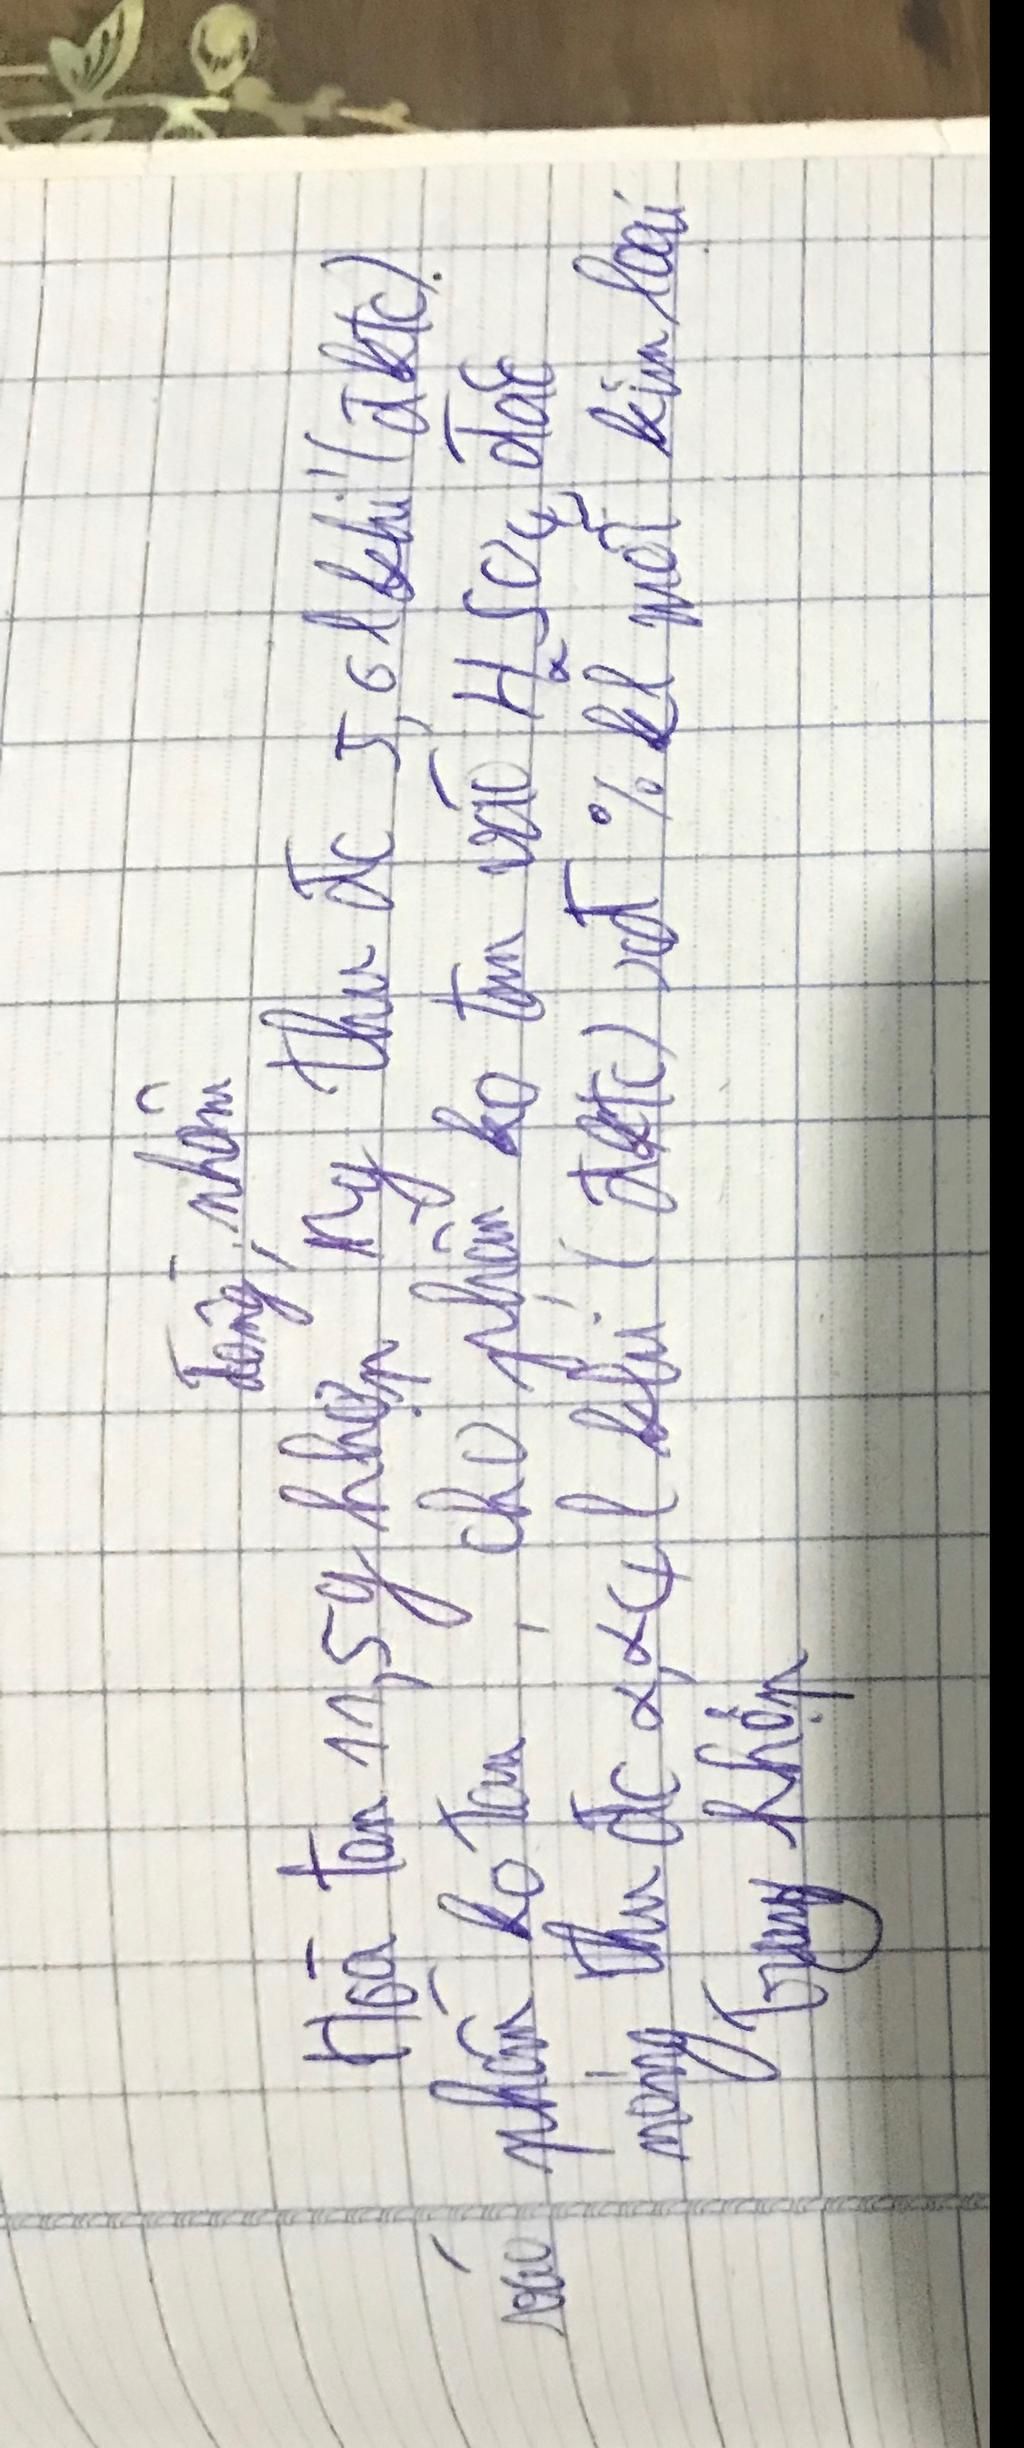 đồng, nhôm
Hoà tan 11,5g hhợp, Mg thu đc 5,6 l khí (đktc).
và phần ko tan, cho phần ko tan vào H2SO4 đặc
nóng thu đc 2,24 l khí (đktc) xđ % kl mỗi kim loại
trong hhợp